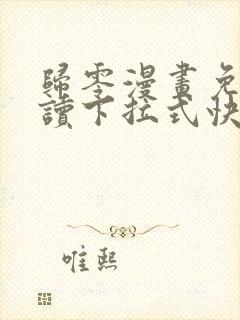 歸零漫畫免
讀下拉式快
唯熙